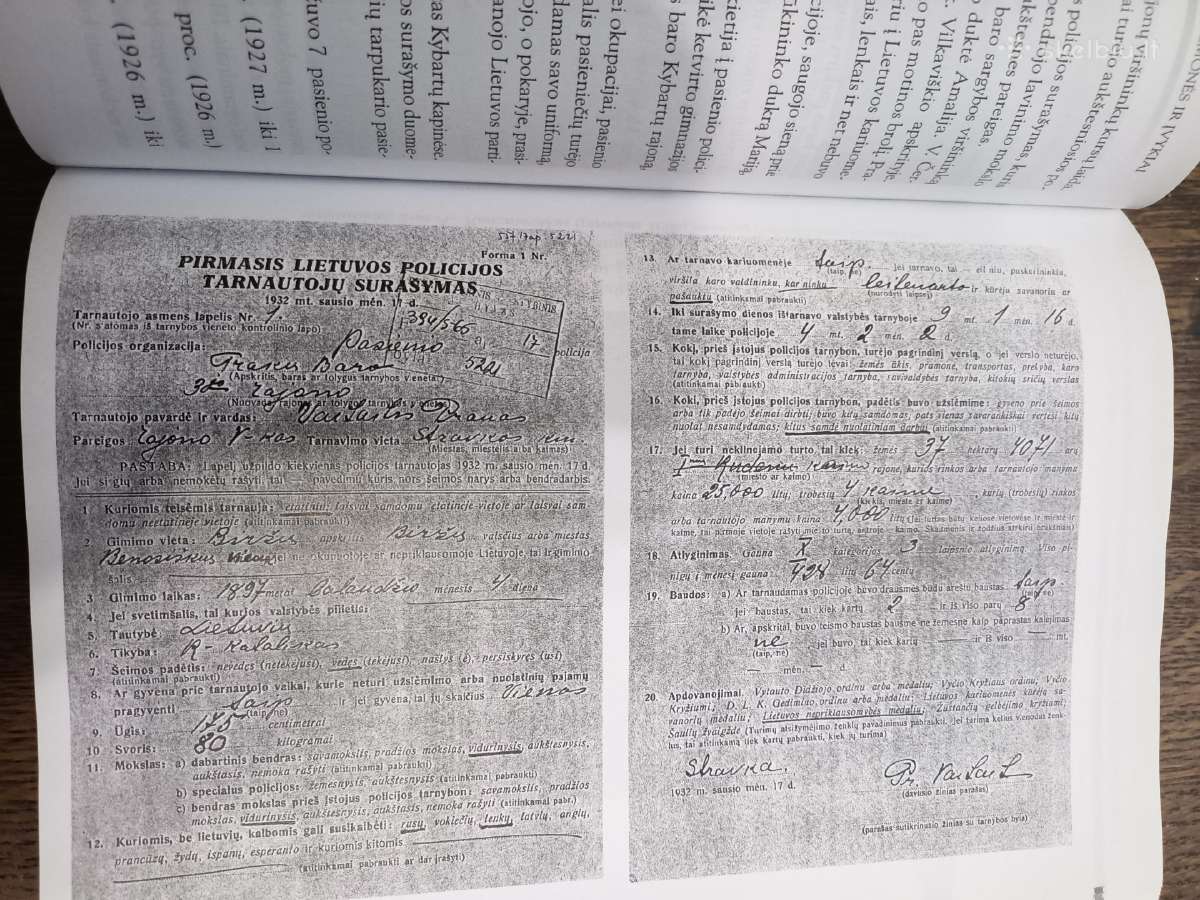 MONĖS IR ĮVYKIAI
jonų viršininkų kursų laidą
ai turėjo aukštesniosios po-
s policijos surašymas, kurį
pendruoju lavinimo mokslo
aukštesnes pareigas.
baro sargybos viršininką
o duktė Amalija. V. Čer-
e. Vilkaviškio apskrityje,
o pas mortinos brolį. Pra-
riu į Lietuvos kariuomenę.
ais, lenkais ir net nebuvo
cijoje, saugojo sieną prie
ūkininko dukrą Mariją
zietija į pasienio polici-
ikė ketvirto gimnazijos
s baro Kybartų rajoną,
ei okupacijai, pasienio
alis pasieniečių turėjo
damas savo uniformą,
ojo, o pokaryje, prasi-
anojo Lietuvos parti-
as Kybartų kapinėse.
os surašymo duome-
ių tarpukario pasie-
uvo 7 pasienio po-
(1927 m.) iki 1
proc. (1926 m.)
(1926 m.) iki
skelbiu.lt
Forma 1 Nr.
PIRMASIS LIETUVOS POLICIJOS
TARNAUTOJŲ SURAŠYMAS
1932 mt. sausio mėn. 17 d.
Tarnautojo asmens lapelis Nr. 1.
(Nr. s'atomas iš tarnybos vieneto kontrolinio lapo)
394/565
17
5221
Policijos organizacija: Pasienio policija
Trakų Baro
(Apskritis, baras ar tolygus tarnybos vieneta)
3čio rajono
(Nuovada, rajonas ar tolygus tarnybos v
Tarnautojo pavardė ir vardas: Pranas
Pareigos rajono V-kas Tarnavimo vieta Stravkos km.
(Miestas, miestelis arba kaimas)
PASTABA: Lapelį užpildo kiekvienas policijos tarnautojas 1932 m. sausio mėn. 17 d.
Jei sugių arba nemokėtų rašyti, tai pavedimu kuris nors šeimos narys arba bendradarbis.
1 Kuriomis teisėmis tarnauja: etatiniu, laisvai samdomu etatinėje vietoje ar laisvai sam-
domu neetatinėje vietoje (atitinkamai pabraukti)
2. Gimimo vieta: Biržų apskr. Biržų valsčius arba miestas
kaimas, jei ne okupuotoje ar nepriklausomoje Lietuvoje, tai ir gimimo
šalis
3 Gimimo laikas: 1897 metai balandžio mėnesis 4 diena
4. Jei svetimšalis, tai kurios valstybės pilietis:
5. Tautybė: Lietuvių
6. Tikyba: R-Katalikas
7. Šeimos padėtis: nevedęs (netekėjusi), vedęs (tekėjusi), našlys (ė), persiskyręs (usi)
(atitinkamai pabraukti)
8. Ar gyvena prie tarnautojo vaikai, kurie neturi užsiėmimo arba nuolatinių pajamų
pragyventi taip (taip, ne) ir jei gyvena, tai jų skaičius Vienas
9. Ūgis: 175 centimetrai
10 Svoris: 80 kilogramai
11. Mokslas: a) dabartinis bendras: savamokslis, pradžios mokslas, vidurinysis, aukštesnysis,
aukštasis, nemoka rašyti (atitinkamai pabraukti)
b) specialus policijos: žemesnysis, aukštesnysis (atitinkamai pabraukti)
c) bendras mokslas prieš įstojus policijos tarnybon: savamokslis, pradžios
mokslas, vidurinysis, aukštesnysis, aukštasis, nemoka rašyti (atitinkamai pabr.)
12. Kuriomis, be lietuvių, kalbomis gali susikalbėti: rusų, vokiečių, lenkų, latvių, anglų,
prancūzų, žydų, ispanų, esperanto ir kuriomis kitomis
(atitinkamai pabraukti ar dar įrašyti)
13. Ar tarnavo kariuomenėje taip. (taip, ne) jei tarnavo, tai eiliniu, puskarininkiu,
viršila karo valdininku, karininku leitenanto (nurodyti laipsnį) ir kūrėju savanoriu ar
pašauktu (atitinkamai pabraukti)
14. Iki surašymo dienos ištarnavo valstybės tarnyboje 9 mt. 1 mėn. 16 d.
tame laike policijoje 4 mt. 2 mėn. 2 d.
15. Kokį, prieš įstojus policijos tarnybon, turėjo pagrindinį verslą, o jei verslo neturėjo,
tai kokį pagrindinį verslą turėjo tėvai: žemės ūkis, pramonė, transportas, prekyba, karo
tarnyba, valstybės administracijos tarnyba, savivaldybės tarnyba, kitokių sričių verslas
(atitinkamai pabraukti)
16. Koks, prieš įstojus policijos tarnybon, padėtis buvo užsiėmime: gyveno prie šeimos
arba tik padėjo šeimai dirbti, buvo kitų samdomas, pats vienas savarankiškai vertėsi kitų
nuolat nesamdydamas, kitus samdė nuolatiniam darbui (atitinkamai pabraukti)
17. Jei turi nekilnojamo turto, tai kiek: žemės 37 hektarų 4071 arų
kaimo rajone, kurios rinkos arba tarnautojo manymu
(miesto ar kaimo)
kaina 25.000 litų, trobesių 4 kaime, kurių (trobesių) rinkos
(kiekis, mieste ar kaime)
arba tarnautojo manymu kaina 4,000 litų
18. Atlyginimas. Gauna X kategorijos 3 laipsnio atlyginimą. Viso pi-
nigų į mėnesį gauna 428 litų 64 centų
19. Baudos: a) Ar tarnaudamas policijoje buvo drausmės būdu areštu baustas taip. (taip, ne)
jei baustas, tai kiek kartų 2 ir iš viso parų 8
b) Ar, apskritai, buvo teismo baustas bausme ne žemesne kaip paprastas kalėjimas
ne (taip, ne) jei buvo, tai kiek kartų — ir iš viso — mt.
— mėn. —
20. Apdovanojimai. Vytauto Didžiojo ordinu arba medaliu; Vyčio Kryžiaus ordinu, Vyčio
Kryžiumi; D. L. K. Gedimino ordinu arba medaliu; Lietuvos kariuomenės kūrėjų sa-
vanorių medaliu; Lietuvos nepriklausomybės medaliu; Žūstančių gelbėjimo kryžiumi;
Šaulių žvaigžde (Turimų atsižymėjimo ženklų pavadinimus pabraukti. Jei tarima kelius vienodus ženk-
lus, tai atitinkamą tiek kartų pabraukti, kiek jų turima)
Stravka.
1932 m. sausio mėn. 17 d.
(davusio žinias parašas)
(parašas sutikrinusio žinias su tarnybos byla)